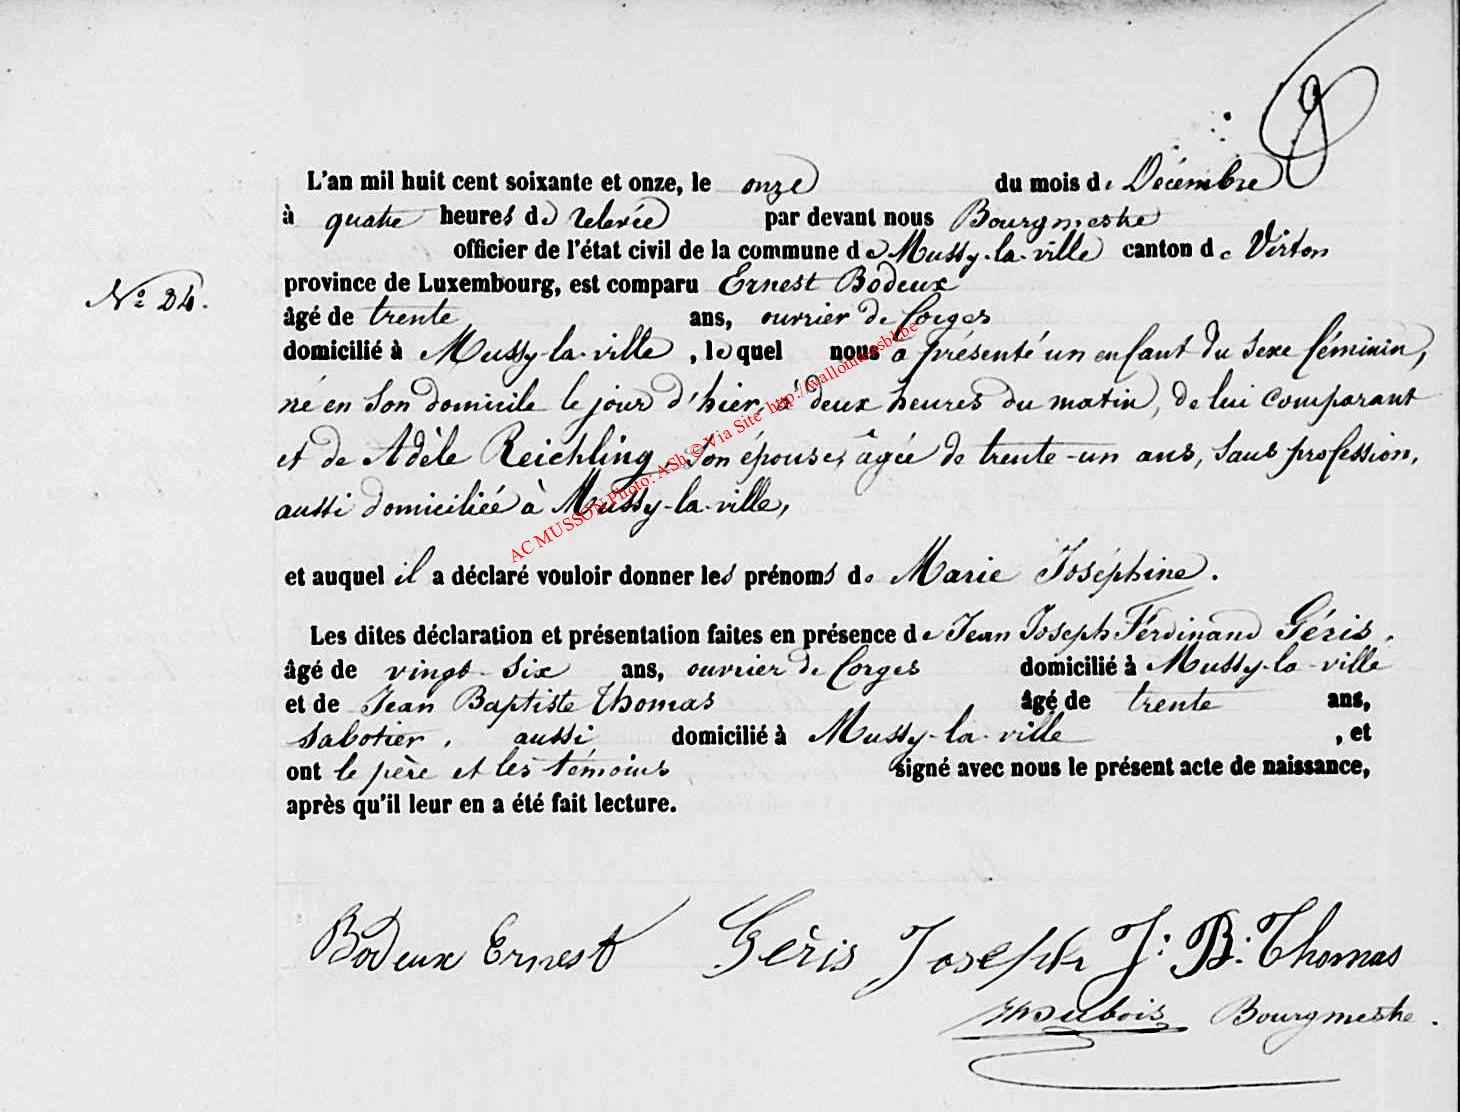 L'an mil huit cent soixante et onze, le onze du mois de Décembre
à quatre heures de relevée par devant nous Bourgmestre
officier de l'état civil de la commune de Mussy-la-ville canton de Virton
N° 24. province de Luxembourg, est comparu Ernest Bodeux
âgé de trente ans, ouvrier de Forges
domicilié à Mussy-la-ville, lequel nous a présenté un enfant du sexe féminin,
né en son domicile le jour d'hier, à deux heures du matin, de lui comparant
et de Adèle Reichling, son épouse, âgée de trente-un ans, sans profession,
aussi domiciliée à Mussy-la-ville,
AC MUSSON Photo: ASh © Via Site http://wallonia.asbl.be
et auquel il a déclaré vouloir donner les prénoms de Marie Joséphine.
Les dites déclaration et présentation faites en présence de Jean Joseph Ferdinand Géris,
âgé de vingt-six ans, ouvrier de Forges domicilié à Mussy-la-ville
et de Jean Baptiste Thomas âgé de trente ans,
sabotier, aussi domicilié à Mussy-la-ville, et
ont le père et les témoins signé avec nous le présent acte de naissance,
après qu'il leur en a été fait lecture.
Bodeux Ernest Géris Joseph J: B: Thomas
Dubois Bourgmestre.